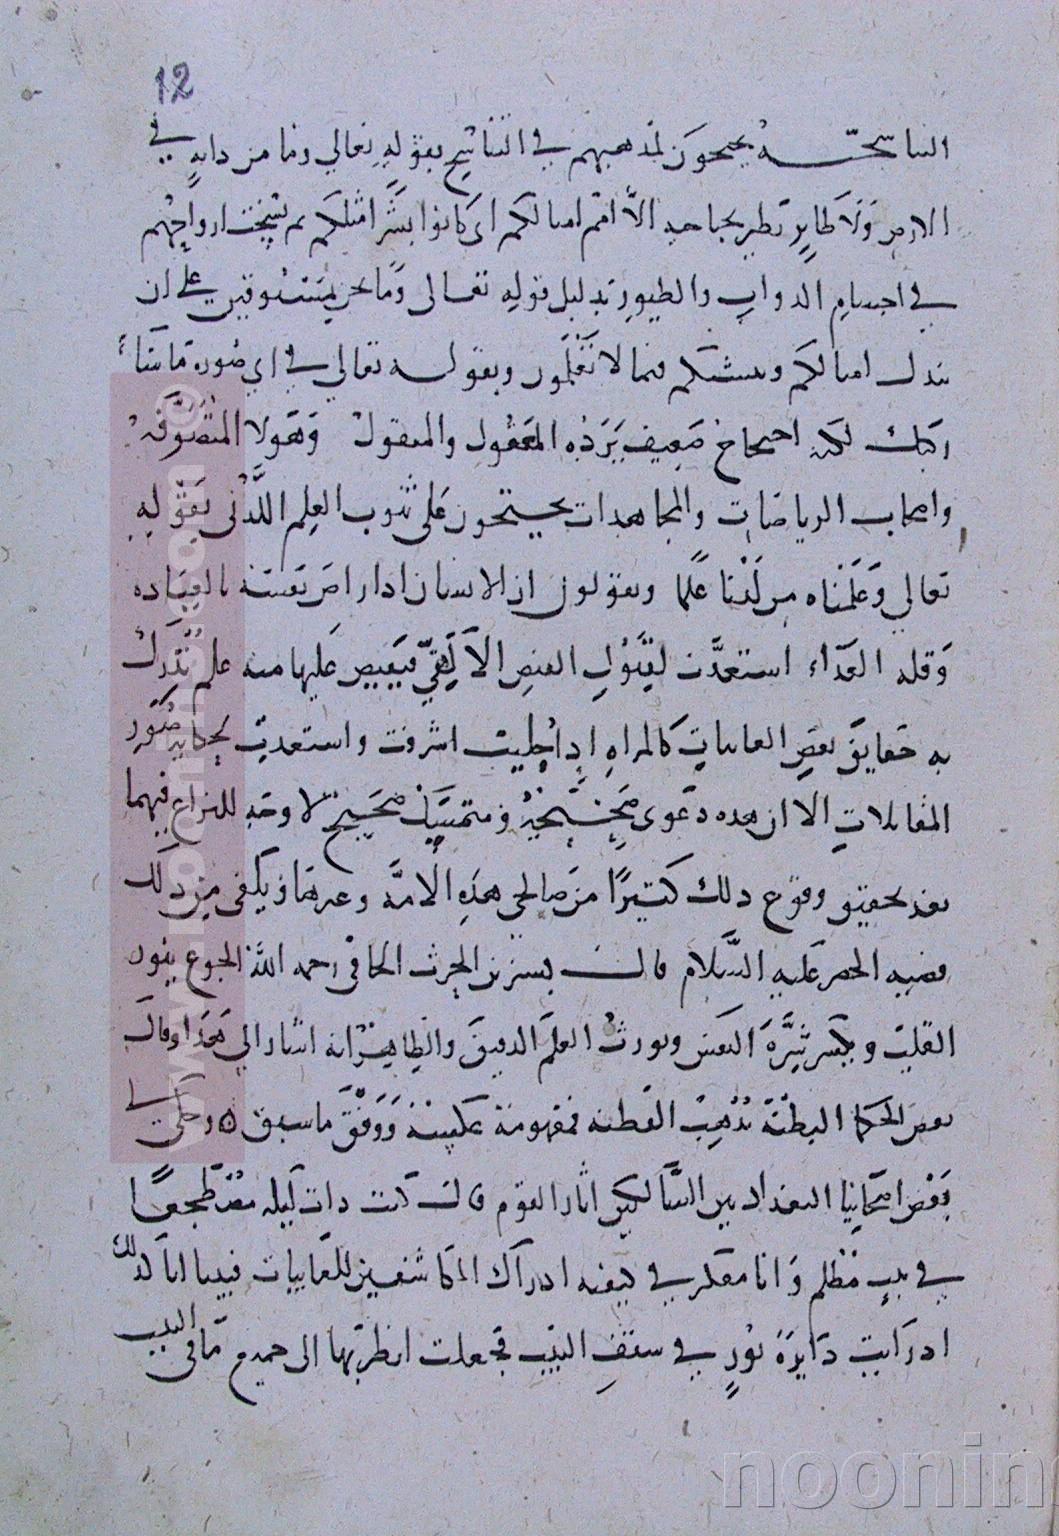 12
التناسخيه يحتجون لمذهبهم في التناسخ بقوله تعالي وما من دابه في
الارض ولا طاير يطير بجناحيه الا امم امثالكم اي كانوا بشرا مثلكم ثم نسخت ارواحهم
في اجسام الدواب والطيور بدليل قوله تعالى وما نحن بمسبوقين على ان
نبدل امثالكم وننشئكم فيما لا تعلمون وبقوله تعالي في اي صورة ما شاء
ركبك لكنه احتجاج ضعيف يرده المعقول والمنقول وهولا المتصوفه
واصحاب الرياضات والمجاهدات يحتجون على ثبوت العلم اللدني بقوله
تعالي وعلمناه من لدنا علما ويقولون ان الانسان اذا راض نفسه بالعباده
وقله الغذاء استعدت لقبول الفيض الالهي فيفيض عليها منه علم تدرك
به حقايق بعض الغايبات كالمراه اذا جليت اشرقت واستعدت لحكايه صور
المقابلات الا ان هذه دعوى صحيحة ومتمسك صحيح لا وجه للنزاع فيهما
بعد تحقيق وقوع ذلك كثيرا من صالحي هذه الامة وغيرها ويكفي من ذلك
قضيه الخضر عليه السلام قال بشر بن الحرث الحافي رحمه الله الجوع ينور
القلب ويكسر شرة النفس ويورث العلم الدقيق والظاهر انه اشار الي هذا وقال
بعض الحكما البطنة تذهب الفطنه فمفهومة عكسه ووفق ما سبق ه وحكى لي
بعض اصحابنا البغداديين السالكين اثار القوم قال كنت ذات ليله مضطجعا
في بيت مظلم وانا مفكر في كيفيه ادراك المكاشفين للغايبات فبينا انا كذلك
اذ رايت دايرة نور في سقف البيت فجعلت انظر بها الى جميع ما في البيت
www.noormags.com ©
noormags